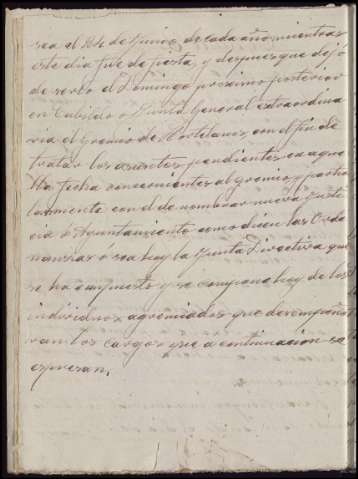 sea el 24 de Junio, de cada año, mientras
este dia fue de fiesta, y despues que dejó
de serlo el Domingo proximo posterior
en Cabildo o Junta General extraordina
ria el gremio de Hortelanos, con el fin de
tratar los asuntos pendientes en aque
lla fecha concernientes al gremio, y particu
larmente con el de nombrar nueva Justi
cia o Ayuntamiento como dicen las Orde
nanzas o sea hoy la Junta Directiva que
se ha compuesto y se compone hoy de los
individuos agremiados que desempeña
ran los cargos que a continuacion se
espresan.